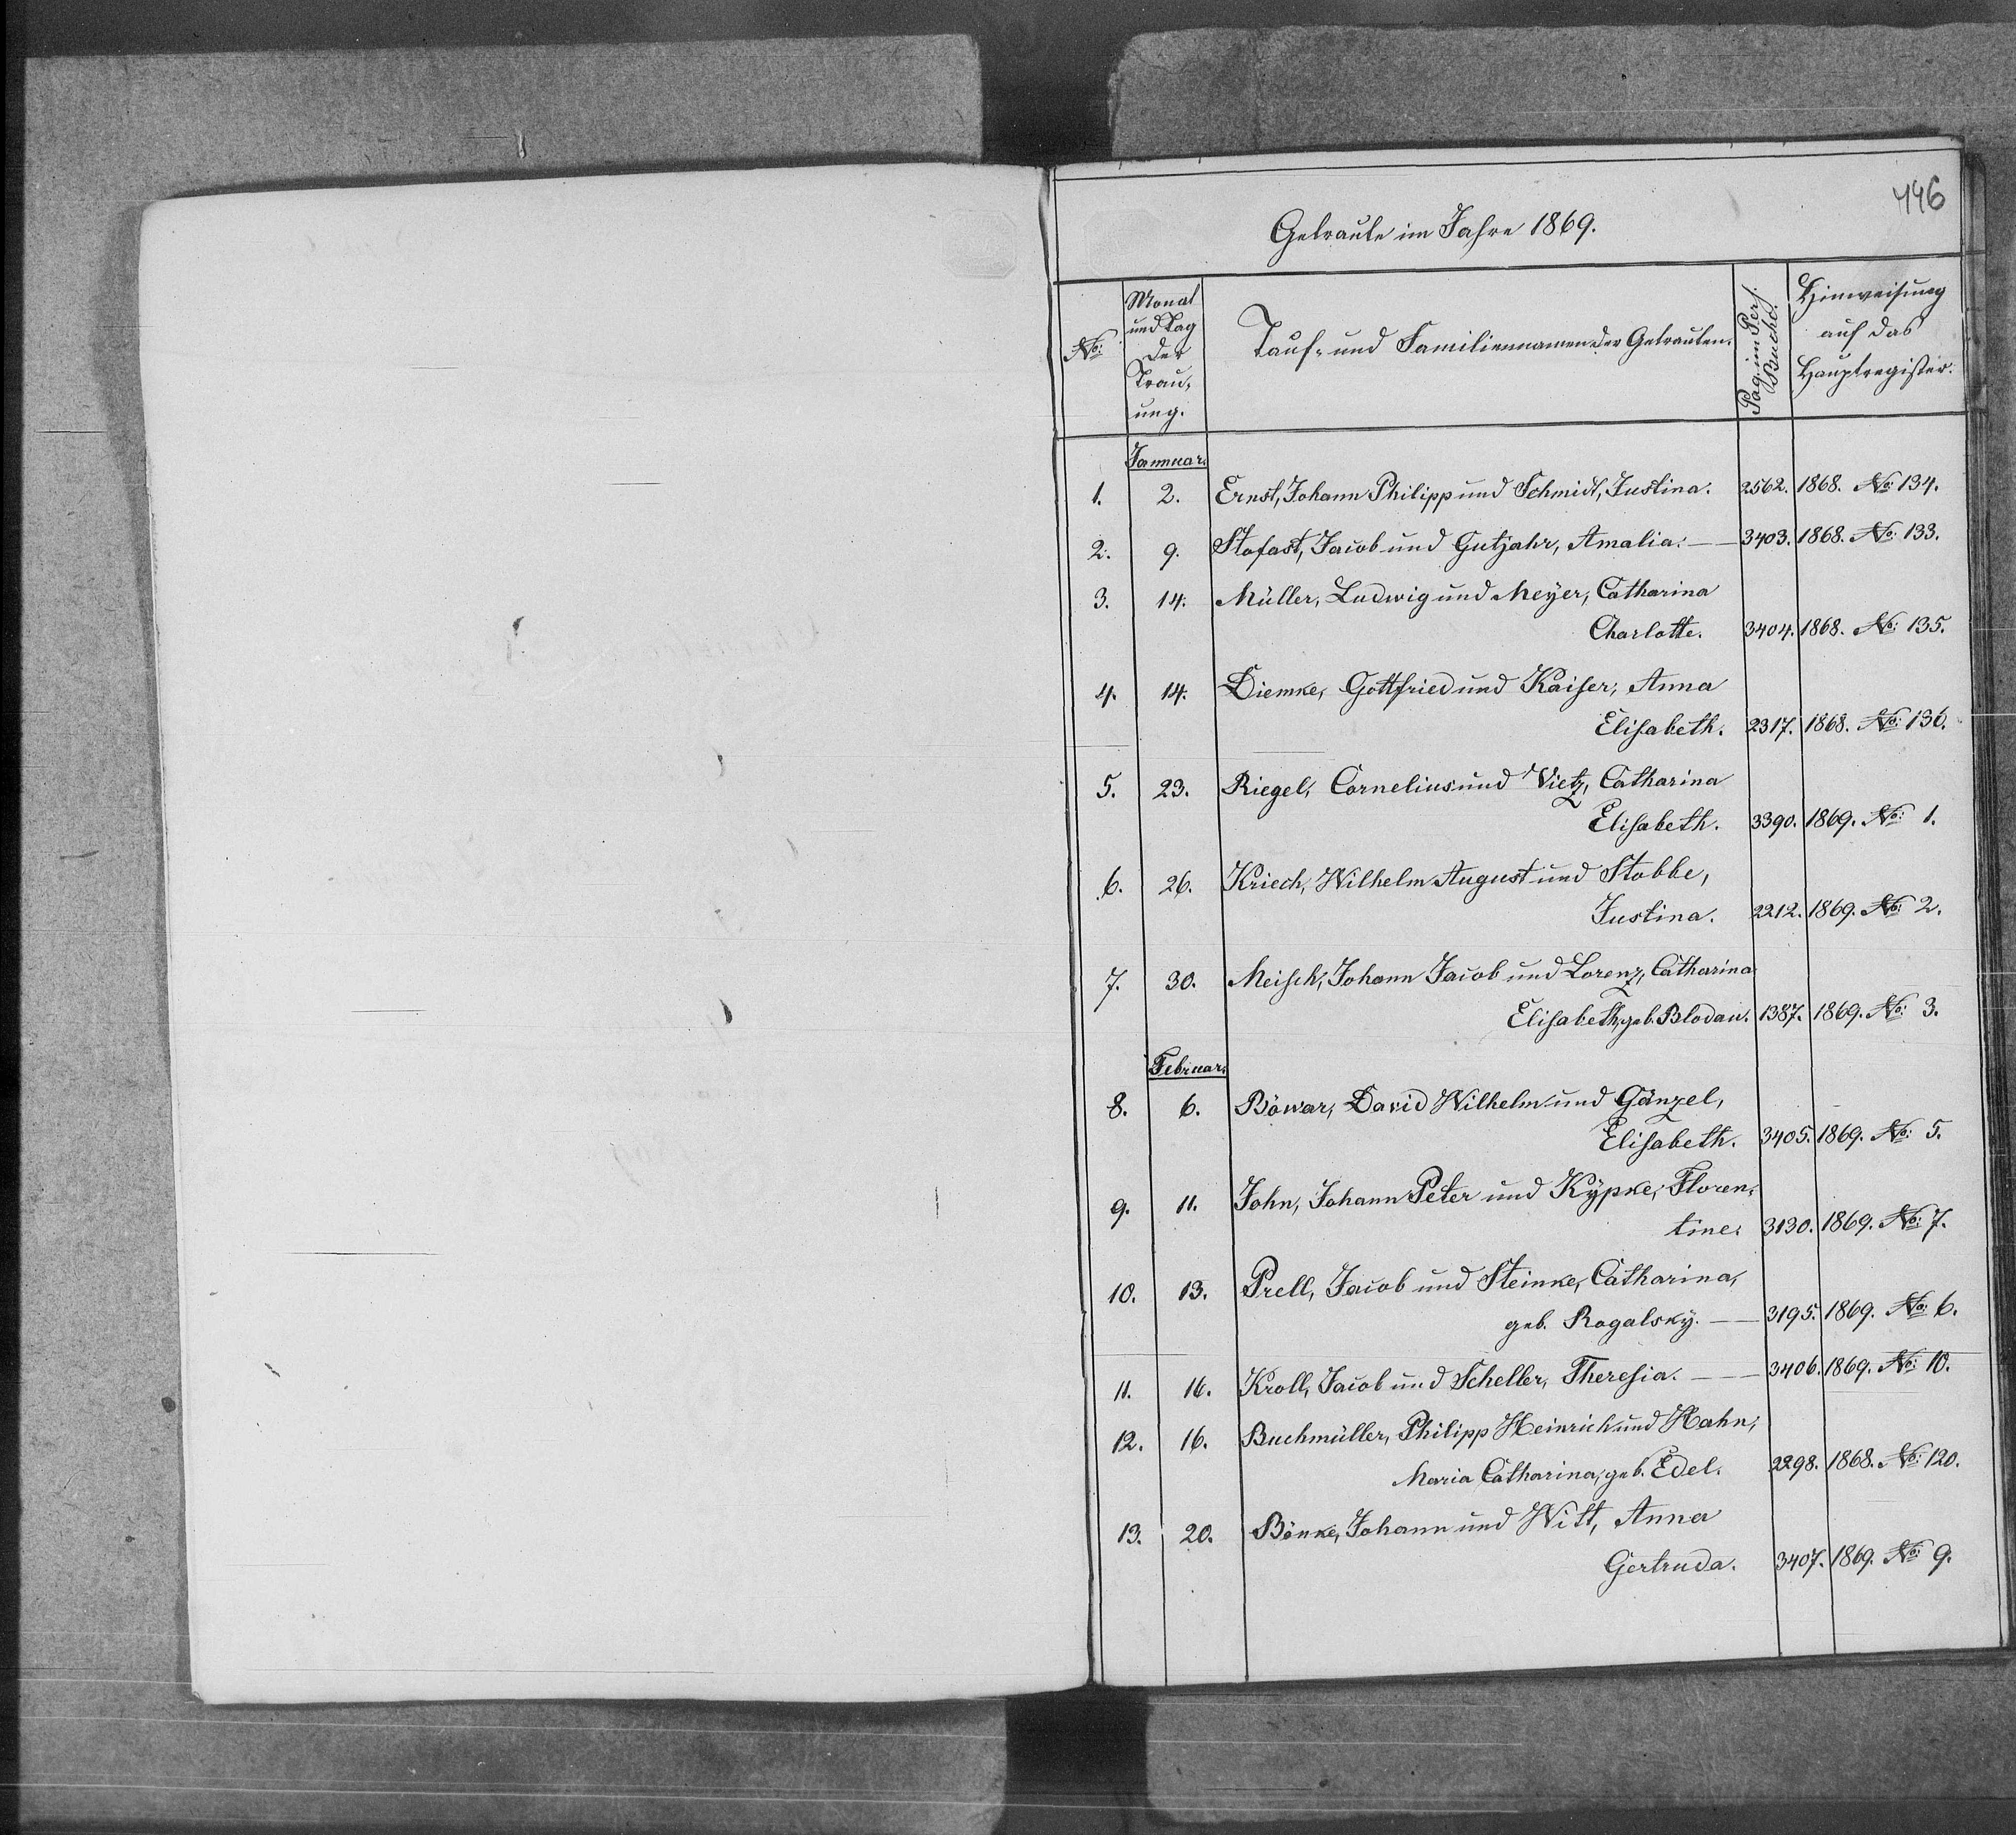 446
Getraute im Jahre 1869.
No: Monat und Tag der Trau- ung. Tauf- und Familiennamen der Getrauten. Pag. im Pers. Buche. Hinweisung auf das Hauptregister.
Januar.
1. 2. Ernst, Johann Philipp und Schmidt, Justina. 2562. 1868. No: 134.
2. 9. Stofast, Jacob und Gutjahr, Amalia. — 3403. 1868. No: 133.
3. 14. Müller, Ludwig und Meyer, Catharina
Charlotte. 3404. 1868. No: 135.
4. 14. Diemke, Gottfried und Kaiser, Anna
Elisabeth. 2317. 1868. No: 136.
5. 23. Riegel, Cornelius und Vietz, Catharina
Elisabeth. 3390. 1869. No: 1.
6. 26. Kriech, Wilhelm August und Stobbe,
Justina. 2212. 1869. No: 2.
7. 30. Meisch, Johann Jacob und Lorenz, Catharina
Elisabeth, geb. Blodau. 1387. 1869. No: 3.
Februar.
8. 6. Böwar, David Wilhelm und Gänzel,
Elisabeth. 3405. 1869. No: 5.
9. 11. John, Johann Peter und Kypke, Floren-
tine. 3130. 1869. No: 7.
10. 13. Prell, Jacob und Steinke, Catharina,
geb. Rogalsky. — 3195. 1869. No: 6.
11. 16. Kroll, Jacob und Scheller, Theresia. — 3406. 1869. No: 10.
12. 16. Buchmüller, Philipp Heinrich und Hahn,
Maria Catharina, geb. Edel. 2298. 1868. No: 120.
13. 20. Bönke, Johann und Witt, Anna
Gertruda. 3407. 1869. No: 9.